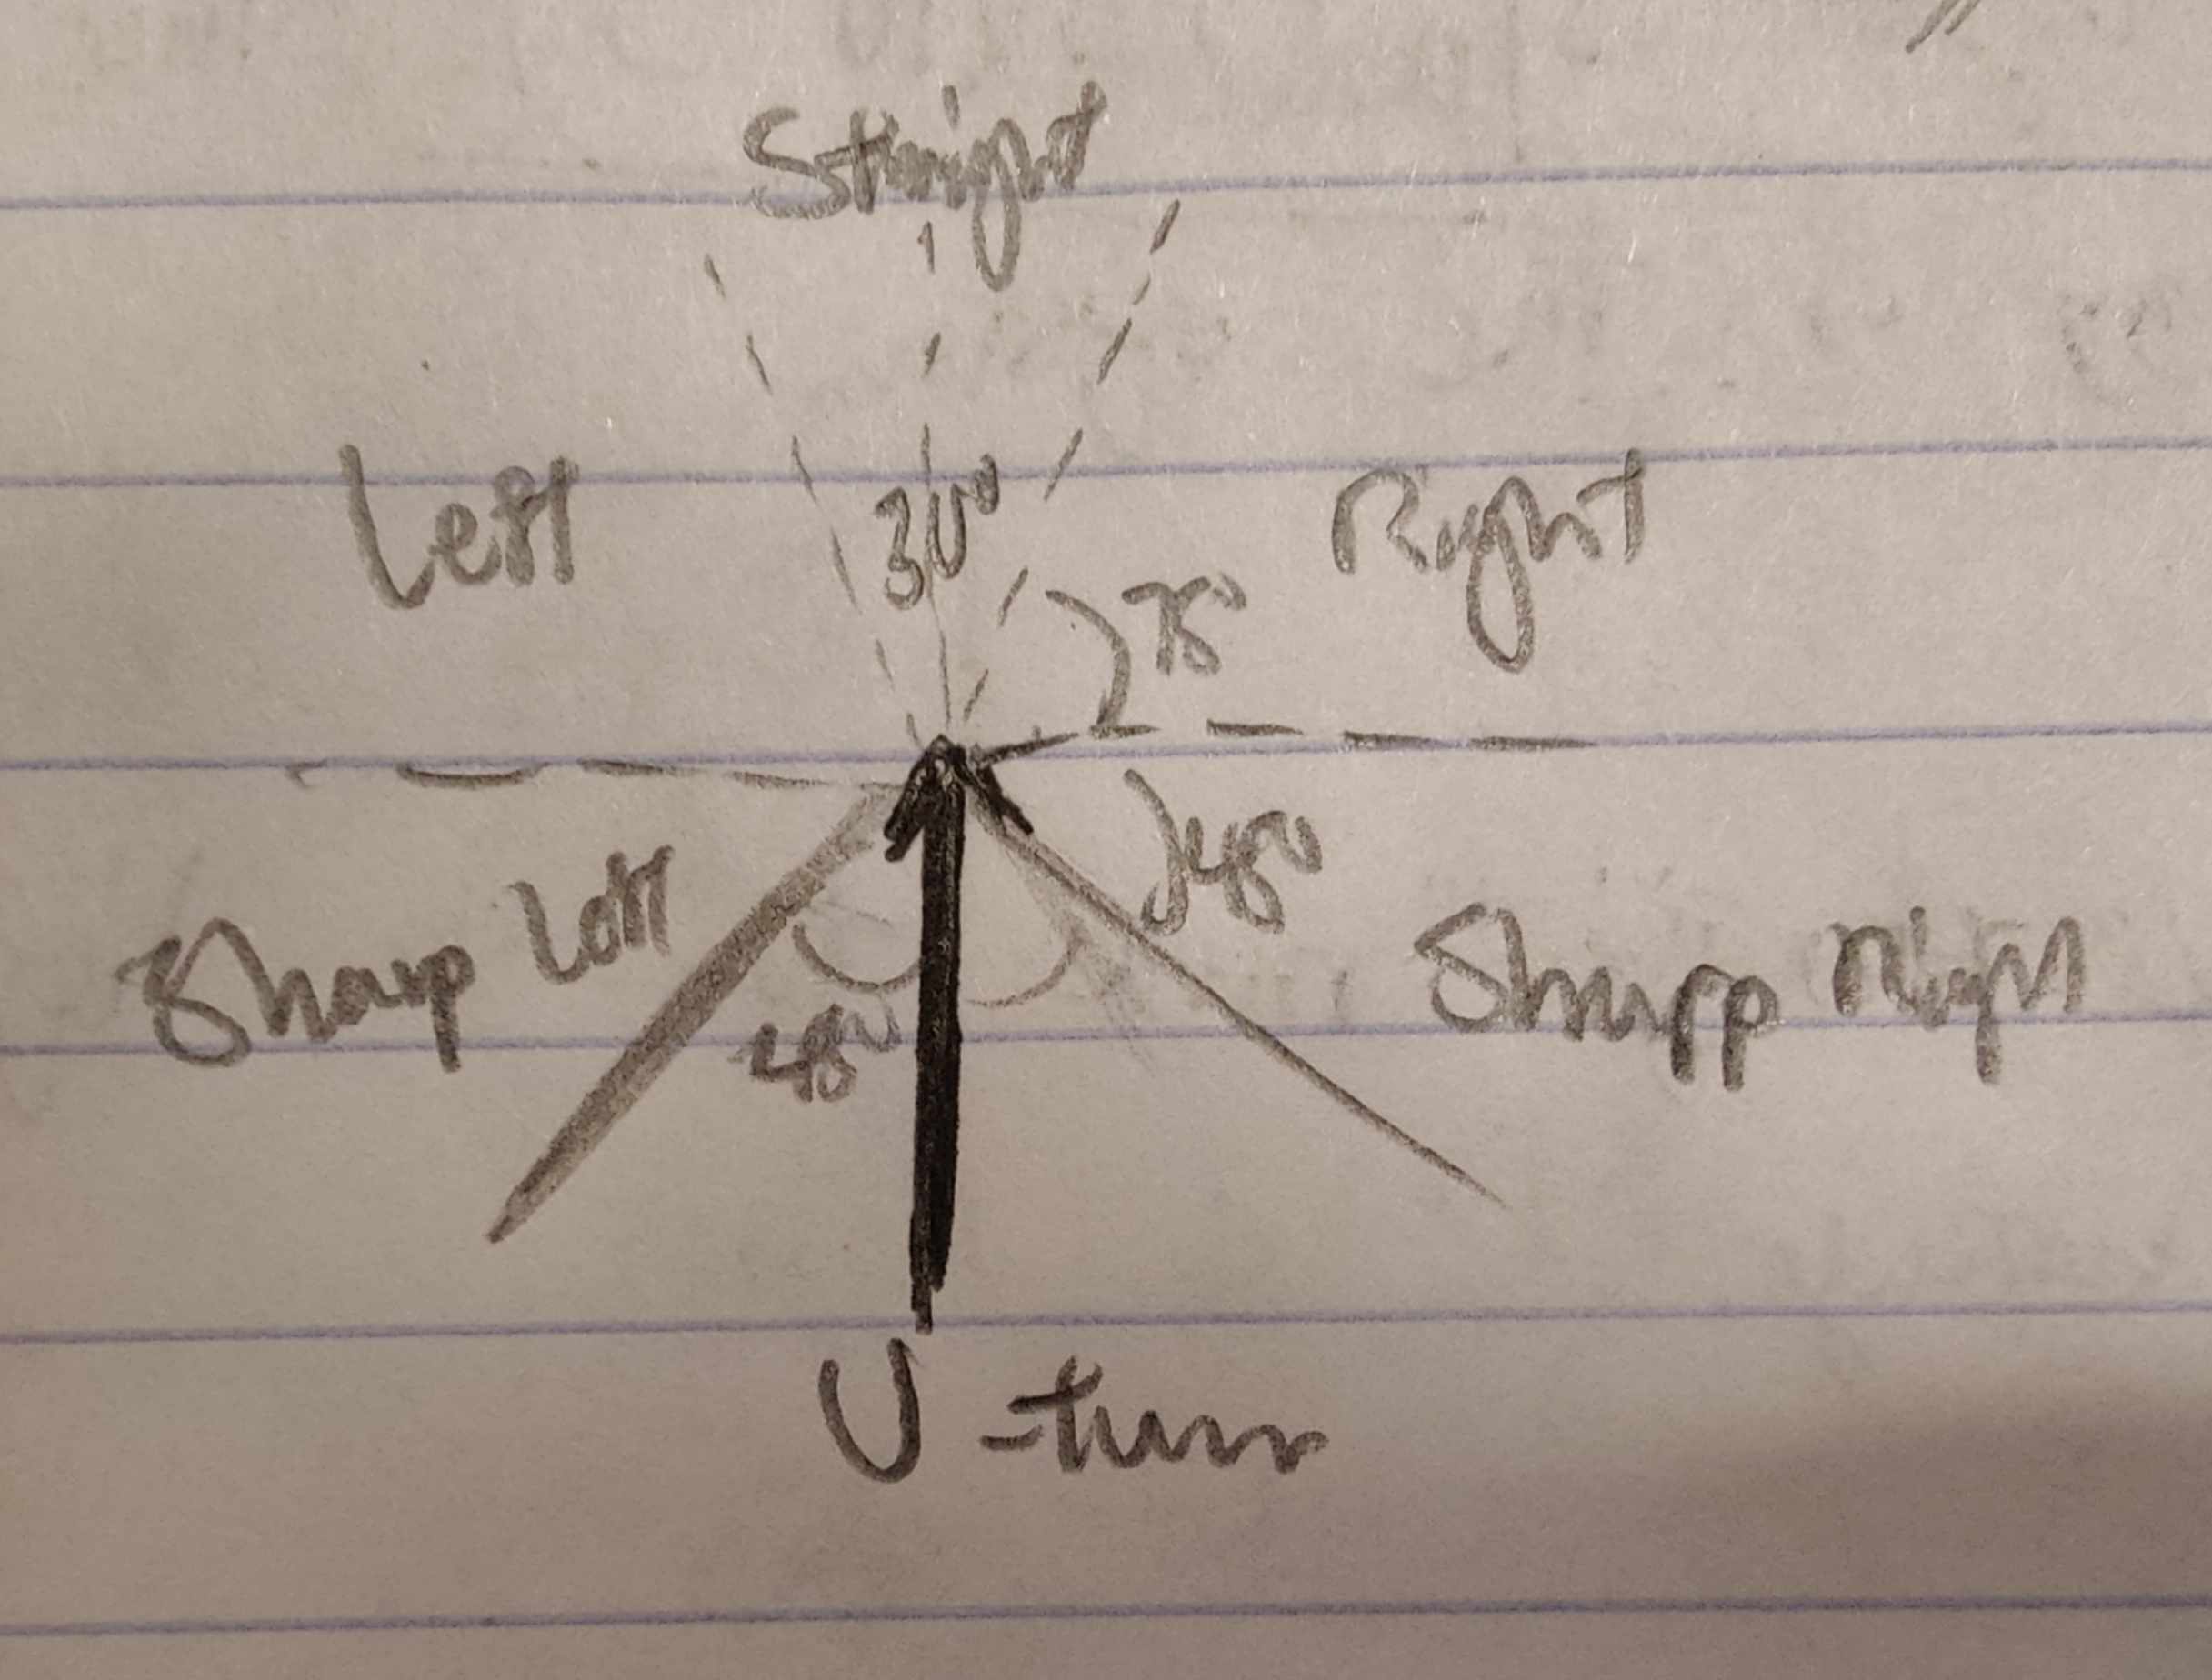 Straight
Left
30°
Right
75°
45°
Sharp Left
Sharp Right
45°
U-turn